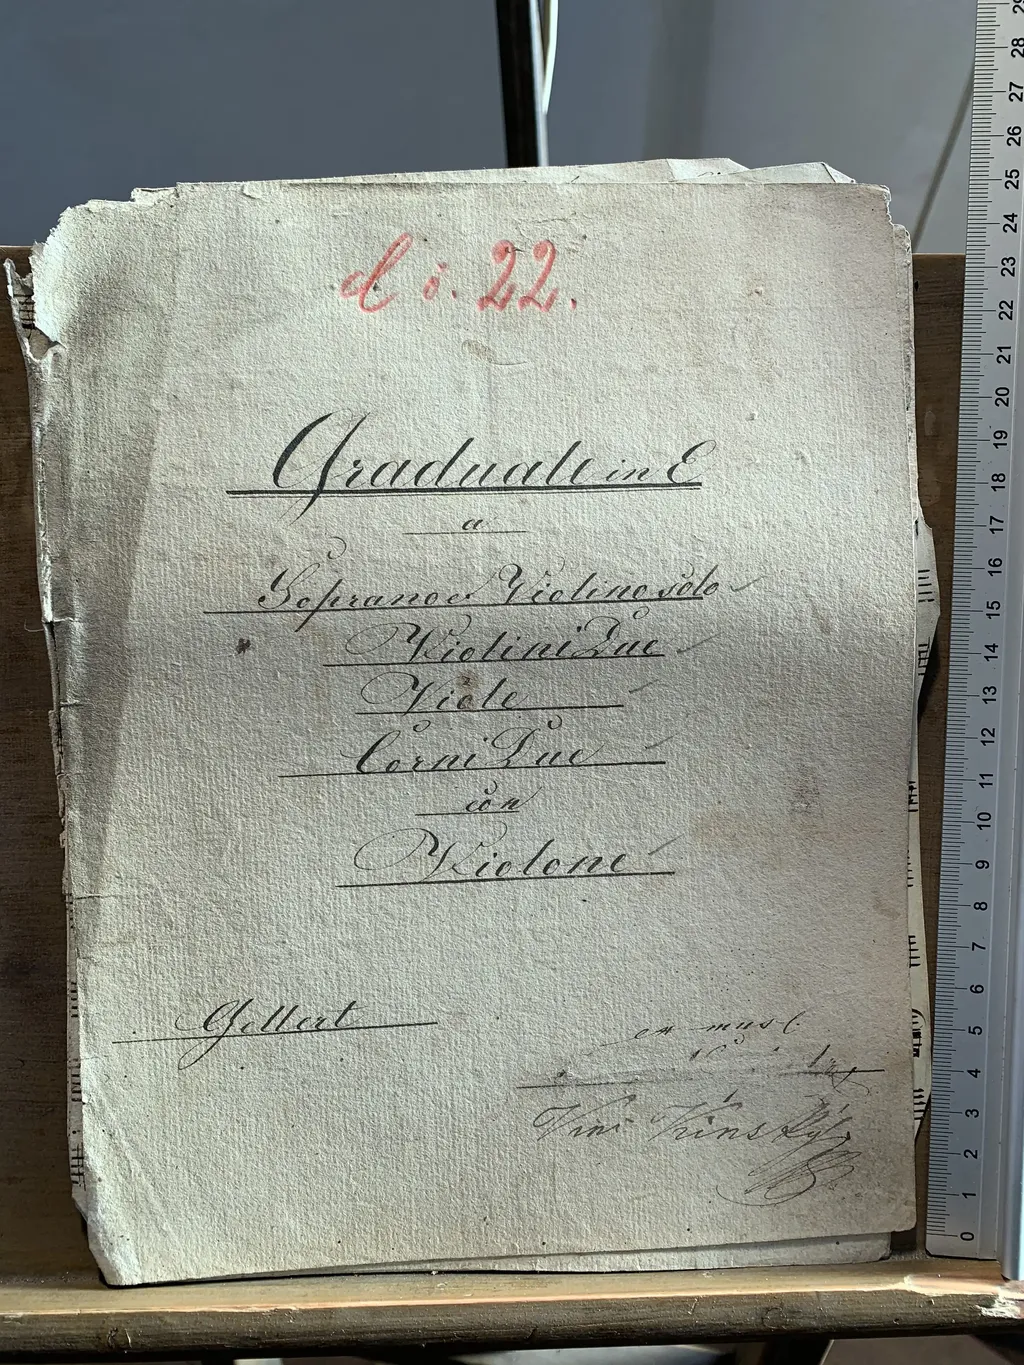 č. 22.
Graduale in E
a
Soprano et Violino solo
Violini Due
Viole
Corni Due
con
Violone
Gellert
ex mus.
29
28
27
26
25
24
23
22
21
20
19
18
17
16
15
14
13
12
11
10
9
8
7
6
5
4
3
2
1
0